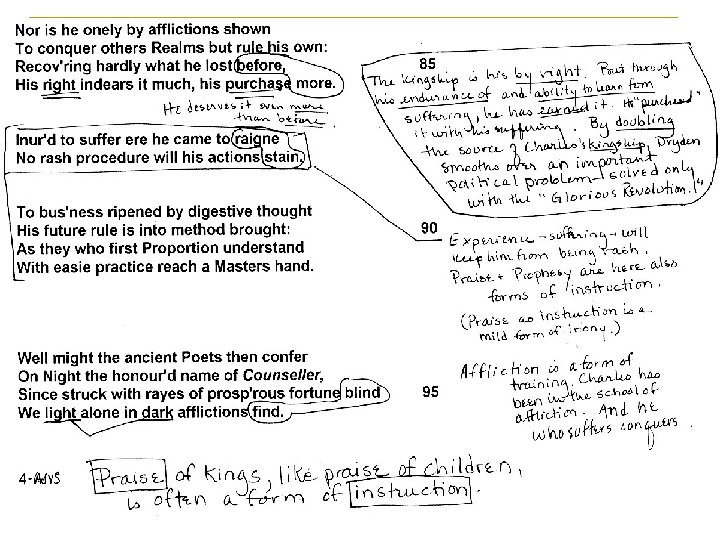 Nor is he onely by afflictions shown
To conquer others Realms but rule his own:
Recov'ring hardly what he lost before,
His right indears it much, his purchase more.
He deserves it even more
than before
Inur'd to suffer ere he came to raigne
No rash procedure will his actions stain,
To bus'ness ripened by digestive thought
His future rule is into method brought:
As they who first Proportion understand
With easie practice reach a Masters hand.
Well might the ancient Poets then confer
On Night the honour'd name of Counseller,
Since struck with rayes of prosp'rous fortune blind
We light alone in dark afflictions find.
85
The kingship is his by right. But through
his endurance of and ability to learn from
suffering, he has earned it. He "purchased"
it with his suffering. By doubling
the source of Charles's kingship, Dryden
smooths over an important
political problem solved only
with the "Glorious Revolution."
90
Experience - suffering - will
keep him from being rash.
Praise + Prophesy are here also
forms of instruction.
(Praise as instruction is a
mild form of irony.)
95
Affliction is a form of
training. Charles has
been in the school of
affliction. And he
who suffers conquers.
Praise of Kings, like praise of children,
is often a form of instruction.